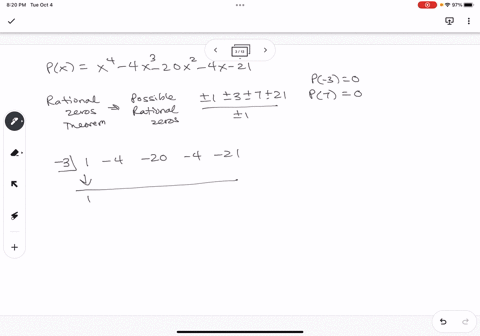 8:20 PM Tue Oct 4
97%
P(x) = x⁴ - 4x³ - 20x² - 4x - 21
P(-3) = 0
P(7) = 0
Rational zeros Theorem ⇒ Possible Rational zeros ±1 ±3 ±7 ±21
±1
-3 | 1 -4 -20 -4 -21
↓
1